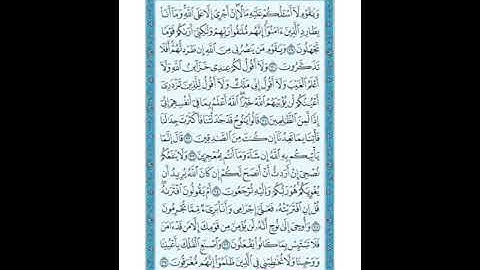 وَيَٰقَوْمِ لَآ أَسْـَٔلُكُمْ عَلَيْهِ مَالًا ۖ إِنْ أَجْرِىَ إِلَّا عَلَى ٱللَّهِ ۚ وَمَآ أَنَا۠
بِطَارِدِ ٱلَّذِينَ ءَامَنُوٓا۟ ۚ إِنَّهُم مُّلَٰقُوا۟ رَبِّهِمْ وَلَٰكِنِّىٓ أَرَىٰكُمْ قَوْمًا
تَجْهَلُونَ ٢٩ وَيَٰقَوْمِ مَن يَنصُرُنِى مِنَ ٱللَّهِ إِن طَرَدتُّهُمْ ۚ أَفَلَا
تَذَكَّرُونَ ٣٠ وَلَآ أَقُولُ لَكُمْ عِندِى خَزَآئِنُ ٱللَّهِ وَلَآ
أَعْلَمُ ٱلْغَيْبَ وَلَآ أَقُولُ إِنِّى مَلَكٌ وَلَآ أَقُولُ لِلَّذِينَ تَزْدَرِىٓ
أَعْيُنُكُمْ لَن يُؤْتِيَهُمُ ٱللَّهُ خَيْرًا ۖ ٱللَّهُ أَعْلَمُ بِمَا فِىٓ أَنفُسِهِمْ ۖ إِنِّىٓ
إِذًا لَّمِنَ ٱلظَّٰلِمِينَ ٣١ قَالُوا۟ يَٰنُوحُ قَدْ جَٰدَلْتَنَا فَأَكْثَرْتَ جِدَٰلَنَا
فَأْتِنَا بِمَا تَعِدُنَآ إِن كُنتَ مِنَ ٱلصَّٰدِقِينَ ٣٢ قَالَ إِنَّمَا
يَأْتِيكُم بِهِ ٱللَّهُ إِن شَآءَ وَمَآ أَنتُم بِمُعْجِزِينَ ٣٣ وَلَا يَنفَعُكُمْ
نُصْحِىٓ إِنْ أَرَدتُّ أَنْ أَنصَحَ لَكُمْ إِن كَانَ ٱللَّهُ يُرِيدُ أَن
يُغْوِيَكُمْ ۚ هُوَ رَبُّكُمْ وَإِلَيْهِ تُرْجَعُونَ ٣٤ أَمْ يَقُولُونَ ٱفْتَرَىٰهُ ۖ
قُلْ إِنِ ٱفْتَرَيْتُهُۥ فَعَلَىَّ إِجْرَامِى وَأَنَا۠ بَرِىٓءٌ مِّمَّا تُجْرِمُونَ
٣٥ وَأُوحِىَ إِلَىٰ نُوحٍ أَنَّهُۥ لَن يُؤْمِنَ مِن قَوْمِكَ إِلَّا مَن قَدْ ءَامَنَ
فَلَا تَبْتَئِسْ بِمَا كَانُوا۟ يَفْعَلُونَ ٣٦ وَٱصْنَعِ ٱلْفُلْكَ بِأَعْيُنِنَا
وَوَحْيِنَا وَلَا تُخَٰطِبْنِى فِى ٱلَّذِينَ ظَلَمُوٓا۟ ۚ إِنَّهُم مُّغْرَقُونَ ٣٧